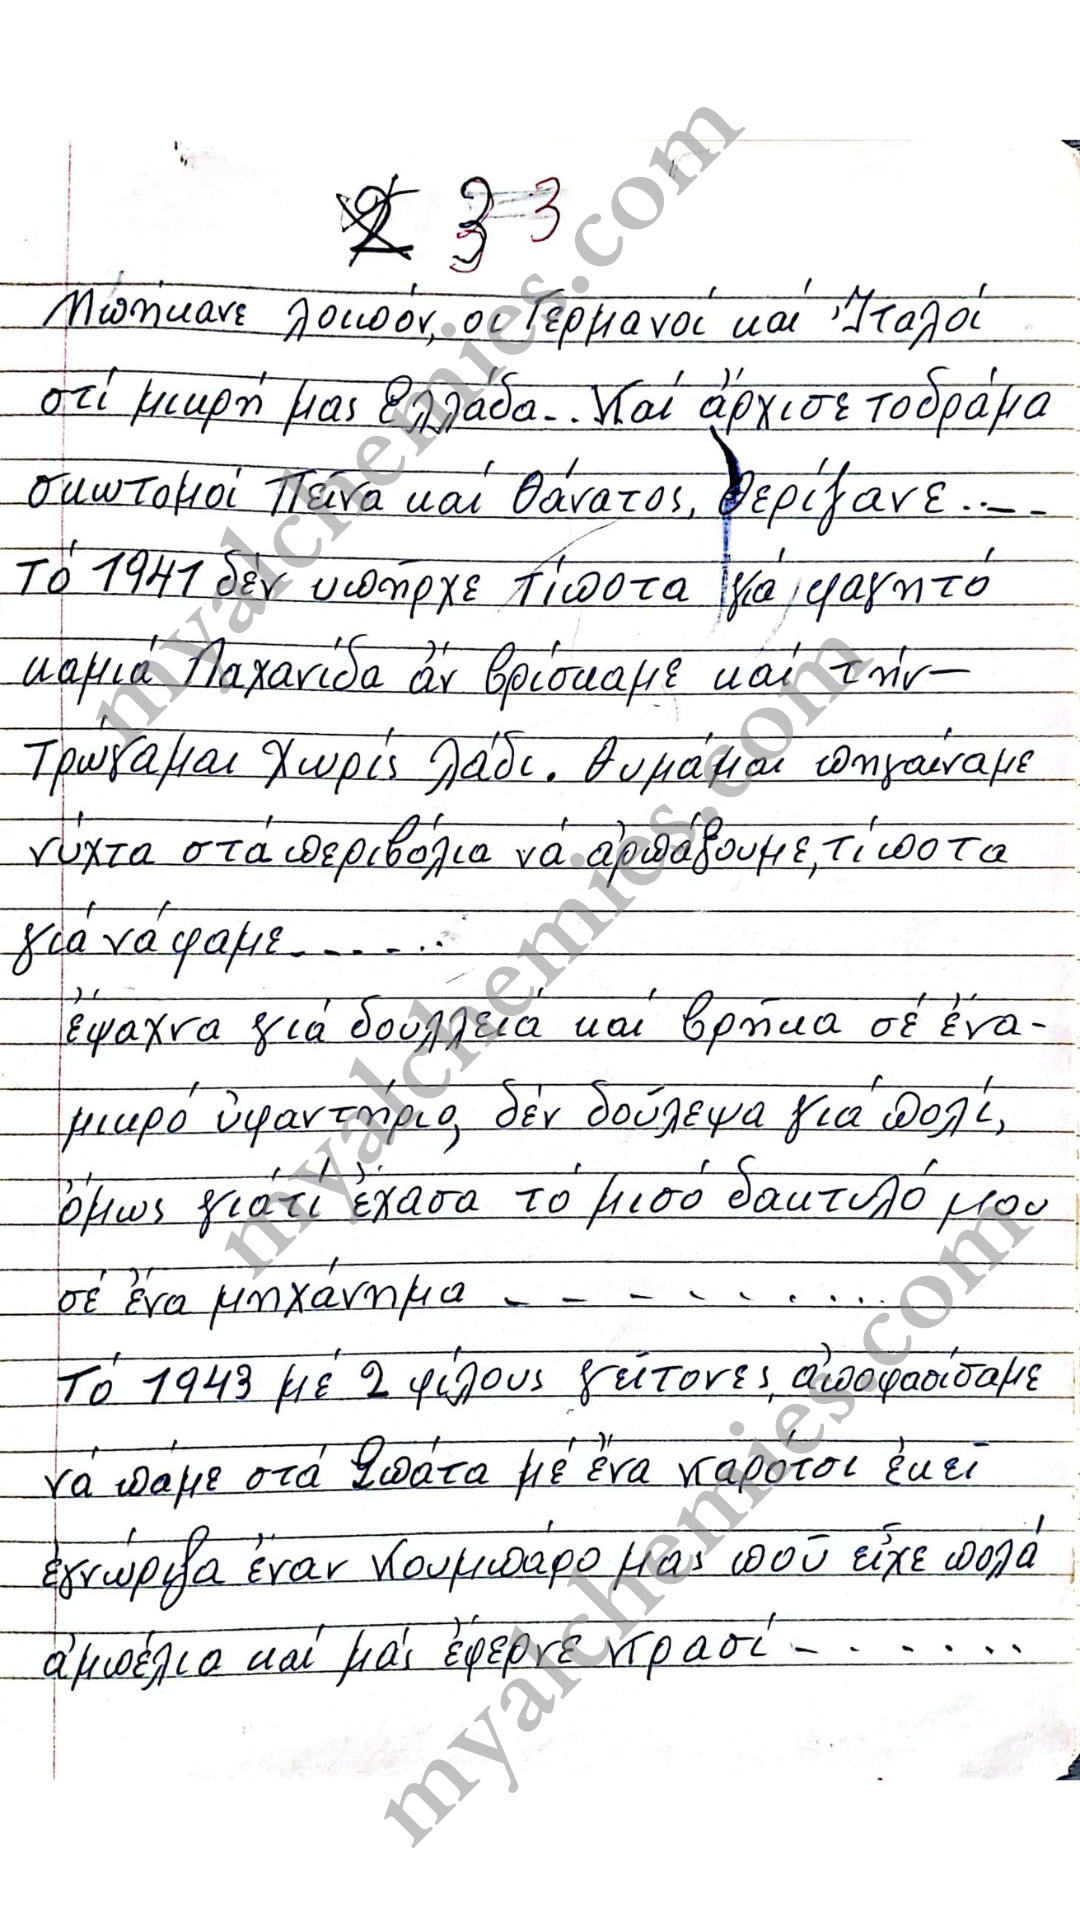 2 3 3
Μπήκανε λοιπόν, οι Γερμανοί καί Ἰταλοί
στί μικρή μας Ελλάδα... Καί ἄρχισε το δράμα
σκωτομοί Πεῖνα καί θάνατος, θερίζανε.....
Τό 1941 δέν υπῆρχε τίποτα γιά φαγητό
καμιά Λαχανίδα ἄν βρίσκαμε καί τήν-
Τρώγαμαι χωρίς λάδι. θυμάμαι πηγαίναμε
νύχτα στά περιβόλια νά αρπάξουμε, τίποτα
γιά νά φαμε......
ἔψαχνα γιά δουλλειά καί βρῆκα σέ ἕνα-
μικρό ὑφαντήριο, δέν δούλεψα γιά πολί,
ὅμως γιάτί ἔχασα τό μισό δακτυλό μου
σέ ἕνα μηχάνημα - - - - - . . . . .
Τό 1943 μέ 2 φίλους γείτονες, ἀποφασίσαμε
νά πάμε στά Σπάτα μέ ἕνα καρότσι ἐκεῖ
ἐγνώριζα ἕναν Κουμπάρο μας ποῦ εἶχε πολά
ἀμπέλια καί μάς ἔφερνε κρασί - . . . . . .
myalchemies.com
myalchemies.com
myalchemies.com